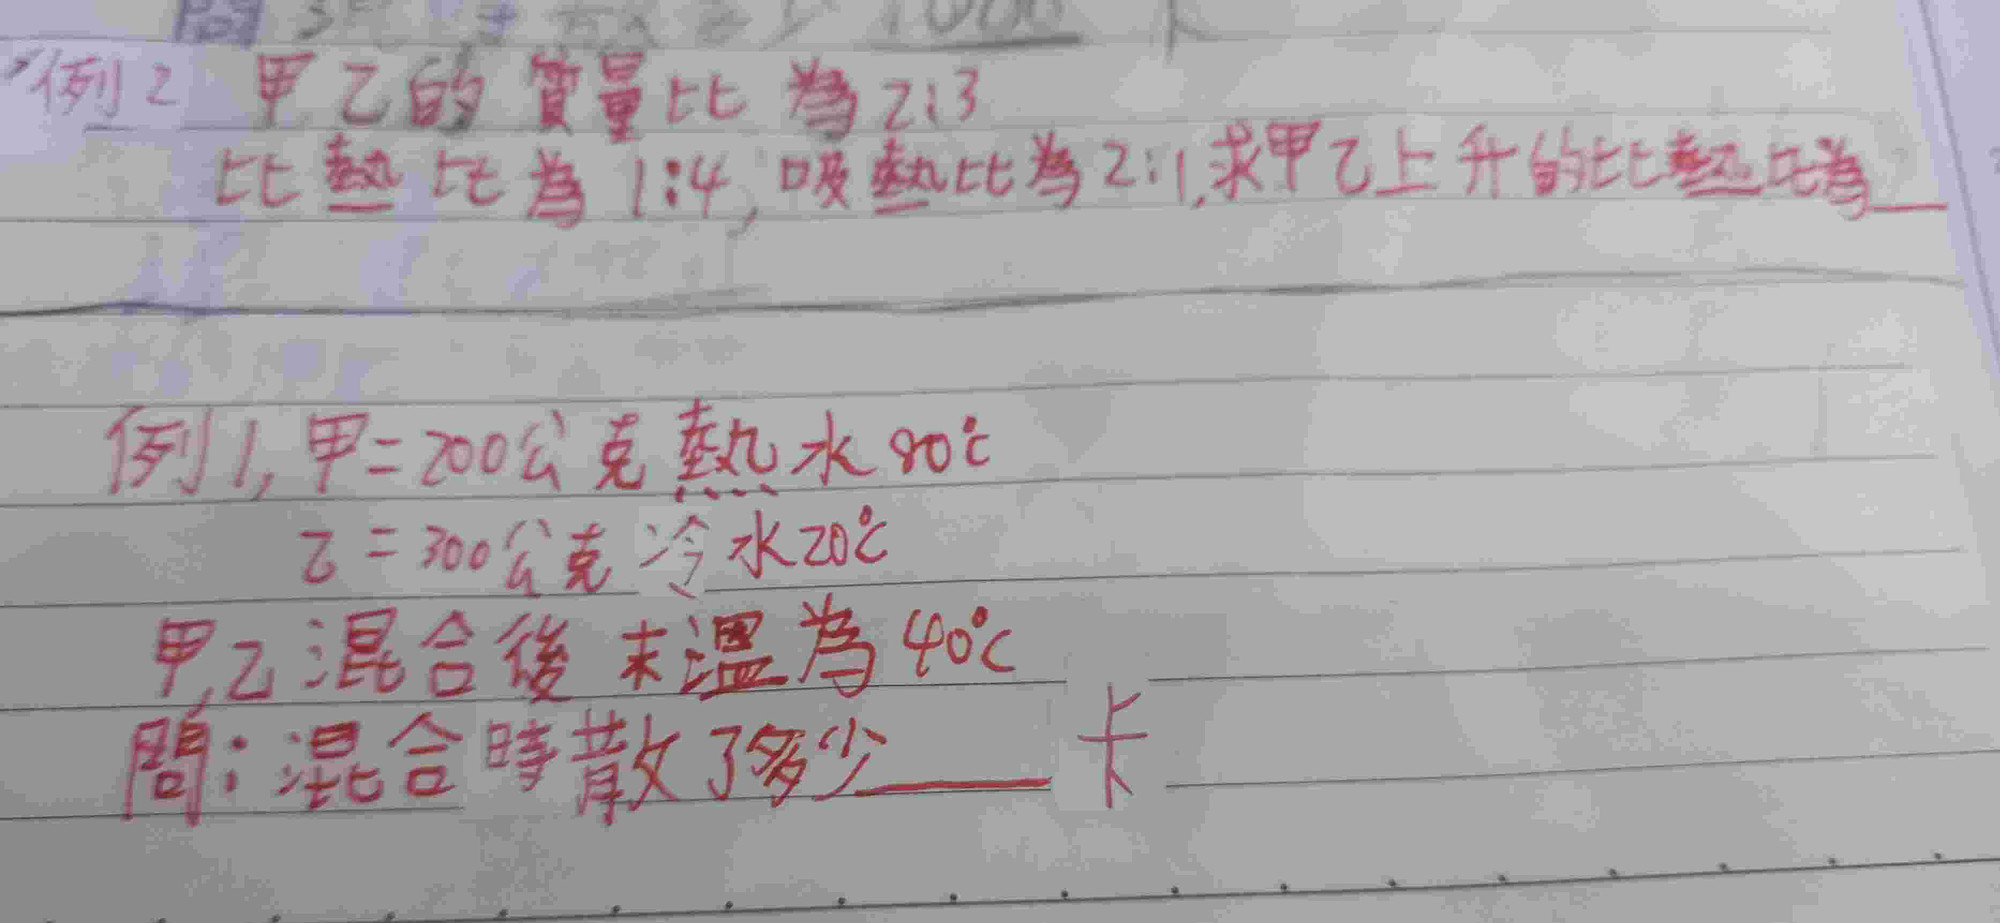 1000 卡
例2 甲乙的質量比為2:3
比熱比為1:4, 吸熱比為2:1,求甲乙上升的比熱比為__
例1, 甲=200公克熱水80℃
乙=300公克冷水20℃
甲,乙混合後末溫為40℃
問:混合時散了多少____卡